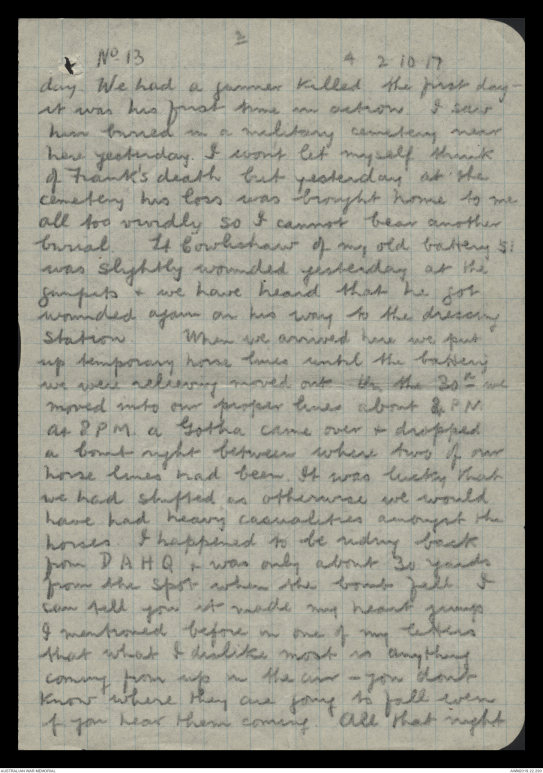 2
No 13 4 2.10.17
day. We had a gunner killed the first day -
it was his first time in action I saw
him buried in a military cemetery near
here yesterday. I wont let myself think
of Frank's death but yesterday at the
cemetery his loss was brought home to me
all too vividly so I cannot bear another
burial. Lt Cowlishaw of my old battery 51
was slightly wounded yesterday at the
gunpits & we have heard that he got
wounded again on his way to the dressing
station When we arrived here we put
up temporary horse lines until the battery
we were relieving moved out On the 30th we
moved into our proper lines about 2 P.M.
At 8 P.M. a Gotha came over & dropped
a bomb right between where two of our
horse lines had been. It was lucky that
we had shifted as otherwise we would
have had heavy casualities amongst the
horses. I happened to be riding back
from D A H Q & was only about 30 yards
from the spot when the bomb fell I
can tell you it made my heart jump
I mentioned before in one of my letters
that what I dislike most is anything
coming from up in the air - you dont
know where they are going to fall even
if you hear them coming. All that night
AUSTRALIAN WAR MEMORIAL